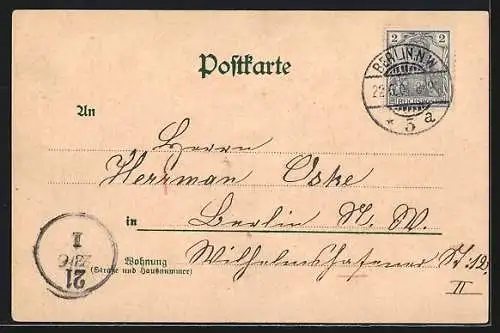 Postkarte
2 2
BERLIN N.W.
REICHSPOST
* 5 a
An
Herrn
Herrman Oske
in Berlin N. W.
Wohnung Wilhelmshafener St: 12,
(Straße und Hausnummer)
II
21
I